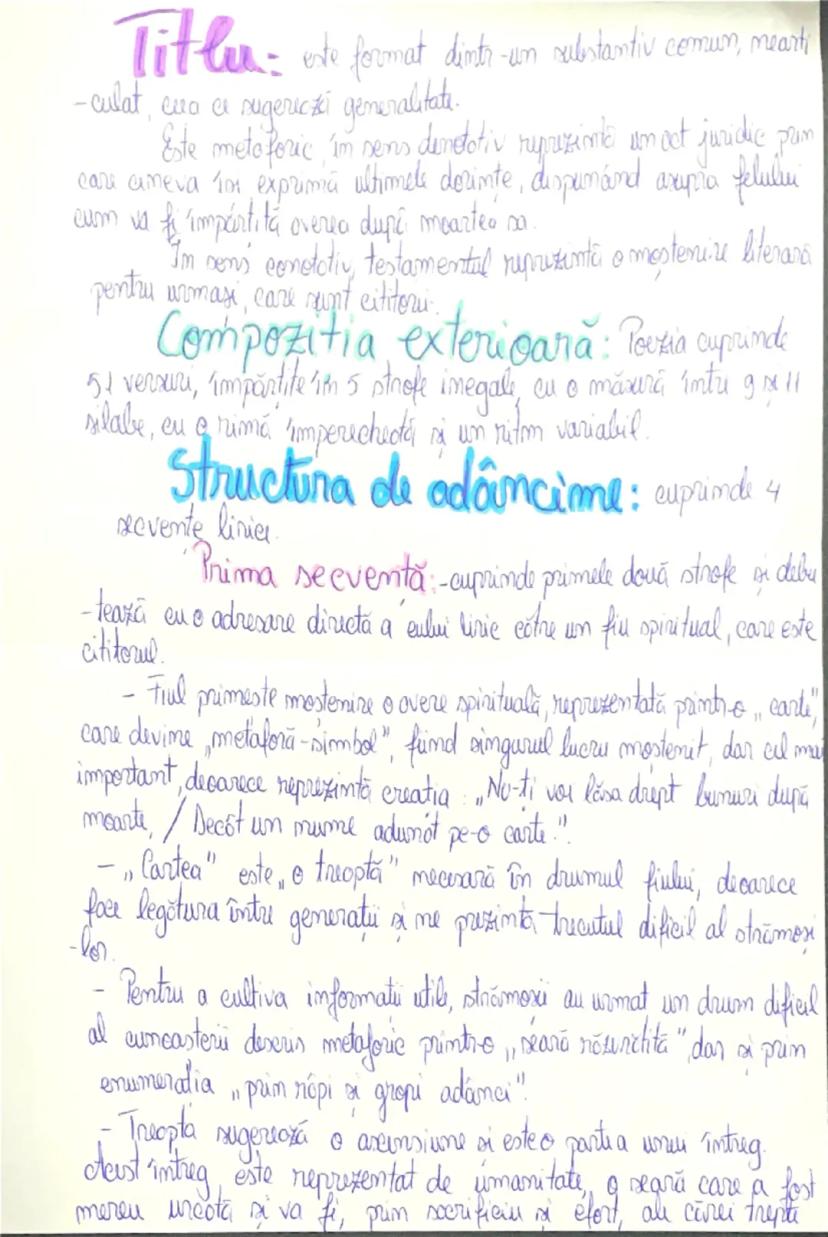 Titlu: este format dintr-un substantiv comun, nearti
-culat, ceea ce sugerează generalitate.
Este metaforic, în sens denotativ reprezintă un act juridic prin
care cineva își exprimă ultimele dorințe, dispunând asupra felului
cum va fi împărțită averea după moartea sa.
În sens conotativ, testamentul reprezintă o moștenire literară
pentru urmași, care sunt cititorii.
Compoziția exterioară: Poezia cuprinde
51 versuri, împărțite în 5 strofe inegale, cu o măsură între 9 și 11
silabe, cu o rimă împerecheată și un ritm variabil.
Structura de adâncime: cuprinde 4
secvențe lirice.
Prima secvență: -cuprinde primele două strofe și debu
-tează cu o adresare directă a eului liric către un fiu spiritual, care este
cititorul.
- Fiul primește moștenire o avere spirituală, reprezentată printr-o „carte",
care devine „metaforă-simbol", fiind singurul lucru moștenit, dar cel mai
important, deoarece reprezintă creația: „Nu-ți voi lăsa drept bunuri după
moarte, / Decât un nume adunat pe-o carte.".
- „Cartea" este „o treaptă" necesară în drumul fiului, deoarece
face legătura între generații și ne prezintă trecutul dificil al strămoși
-lor.
- Pentru a cultiva informații utile, strămoșii au urmat un drum dificil
al cunoașterii descris metaforic printr-o „seară răzvrătită", dar și prin
enumerația „prin râpi și gropi adânci".
- Treapta sugerează o ascensiune și este o parte a unui întreg.
Acest întreg este reprezentat de umanitate, o scară care a fost
mereu urcată și va fi, prin sacrificiu și efort, ale cărei trepte